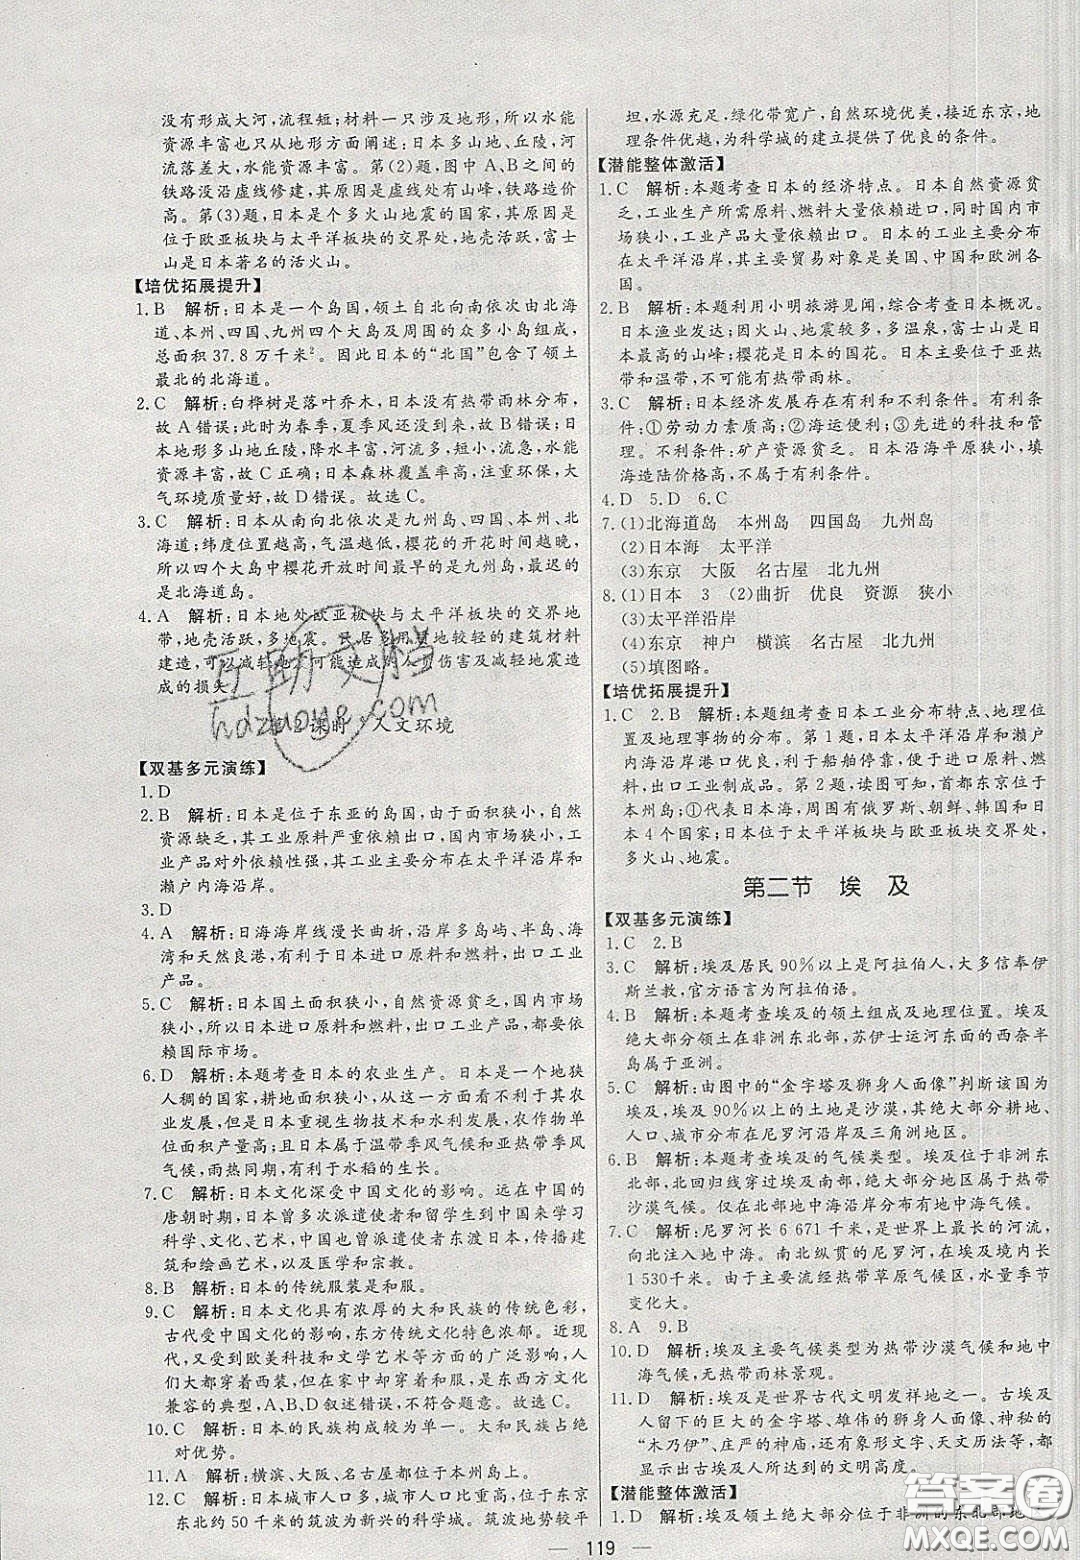 没有形成大河,流程短;材料一只涉及地形,所以水能
资源丰富只从地形方面阐述:日本多山地、丘陵,河
流落差大,水能资源丰富。第(2)题,图中A、B之间的
铁路没沿虚线修建,其原因是虚线处有山峰,铁路造价
高。第(3)题,日本是个多火山地震的国家,其原因是
位于欧亚板块与太平洋板块的交界,地壳活跃,富士
山是日本著名的活火山。
【培优拓展提升】
1.B 解析:日本是一个岛国,领土自北向南依次由北海
道、本州、四国、九州四个大岛及周围的众多小岛组成,
总面积37.8万千米²。因此日本的“北国”包含了领土
最北的北海道。
2.C 解析:白桦树是落叶乔木,日本没有热带雨林分布,
故A错误;此时为春季,夏季风还没到来,故B错误;日
本地形多山地丘陵,降水丰富,河流多,短小,流急,水能
资源丰富,故C正确;日本森林覆盖率高,注重环保,大
气环境质量好,故D错误。故选C。
3.C 解析:日本从南向北依次是九州岛、四国、本州、北
海道;纬度位置越高,气温越低,樱花的开花时间越晚,
所以四个大岛中樱花开放时间最早的是九州岛,最迟的
是北海道岛。
4.A 解析:日本地处欧亚板块与太平洋板块的交界地
带,地壳活跃,多地震。民居多用质地较轻的建筑材料
建造,可以减轻地震可能造成的人员伤害及减轻地震造
成的损失。
2课时 人文环境
【双基多元演练】
1.D
2.B 解析:日本是位于东亚的岛国,由于面积狭小,自然
资源缺乏,其工业原料严重依赖出口,国内市场狭小,工
业产品对外依赖性强,其工业主要分布在太平洋沿岸和
濑户内海沿岸。
3.D
4.A 解析:日海海岸线漫长曲折,沿岸多岛屿、半岛、海
湾和天然良港,有利于日本进口原料和燃料,出口工业
产品。
5.C 解析:日本国土面积狭小,自然资源贫乏,国内市场
狭小,所以日本进口原料和燃料,出口工业产品,都要依
赖国际市场。
6.D 解析:本题考查日本的农业生产。日本是一个地狭
人稠的国家,耕地面积狭小,从这一方面看不利于农业
发展,但是日本重视生物技术和水利发展,农作物单
位面积产量高;且日本属于温带季风气候和亚热带季风
气候,雨热同期,有利于水稻的生长。
7.C 解析:日本文化深受中国文化的影响。远在中国的
唐朝时期,日本曾多次派遣使者和留学生到中国来学习
科学、文化、艺术,中国也曾派遣使者东渡日本,传播建
筑和绘画艺术,以及医学和宗教。
8.B 解析:日本的传统服装是和服。
9.C 解析:日本文化具有浓厚的大和民族的传统色彩,
古代受中国文化的影响,东方传统文化特色浓郁。近现
代,又受到欧美科技和文学艺术等方面的广泛影响,人
们上班时穿着西装,但在家中却穿着和服,是东西方文化
兼容的典型,A、B、D叙述错误,不符合题意。故选C。
10.C 解析:日本的民族构成较为单一。大和民族占绝
对优势。
11.A 解析:横滨、大阪、名古屋都位于本州岛上。
12.C 解析:日本城市人口多,城市人口比重大,在东京
东北约50千米的筑波为新兴的科学城。筑波地势较平
坦,水源充足,绿化带宽广,自然环境优美,接近东京,地
理条件优越,为科学城的建立提供了优良的条件。
【潜能整体激活】
1.C 解析:本题考查日本的经济特点。日本自然资源贫
乏,工业生产所需原料、燃料大量依赖进口,同时国内市
场狭小,工业产品大量依赖出口。日本的工业主要分布
在太平洋沿岸,其主要贸易对象是美国、中国和欧洲各
国。
2.B 解析:本题利用小明旅游见闻,综合考查日本概况。
日本渔业发达;因火山、地震较多,多温泉,富士山是日
本最高的山峰;樱花是日本的国花。日本主要位于亚热
带和温带,不可能有热带雨林。
3.C 解析:日本经济发展存在有利和不利条件。有利条
件:①劳动力素质高;②海运便利;③先进的科技和管
理。不利条件:矿产资源贫乏。日本沿海平原狭小,填
海造陆价格高,不属于有利条件。
4.D 5.D 6.C
7.(1)北海道岛 本州岛 四国岛 九州岛
(2)日本海 太平洋
(3)东京 大阪 名古屋 北九州
8.(1)日本 3 (2)曲折 优良 资源 狭小
(3)太平洋沿岸
(4)东京 神户 横滨 名古屋 北九州
(5)填图略。
【培优拓展提升】
1.C 2.B 解析:本题组考查日本工业分布特点、地理位
置及地理事物的分布。第1题,日本太平洋沿岸和濑户
内海沿岸港口优良,利于船舶停靠,便于进口工业原
料,出口工业制成品。第2题,读图可知,首都东京位于
本州岛;①代表日本海,周围有俄罗斯、朝鲜、韩国和日
本4个国家;日本位于太平洋板块与欧亚板块交界处,
多火山、地震。
第二节 埃及
【双基多元演练】
1.C 2.B
3.C 解析:埃及居民90%以上是阿拉伯人,大多信奉伊
斯兰教,官方语言为阿拉伯语。
4.B 解析:本题考查埃及的领土组成及地理位置。埃及
绝大部分领土在非洲东北部,苏伊士运河东面的西奈半
岛属于亚洲。
5.C 解析:由图中的“金字塔及狮身人面像”判断该国为
埃及,埃及90%以上的土地是沙漠,其绝大部分耕地、
人口、城市分布在尼罗河沿岸及三角洲地区。
6.B 解析:本题考查埃及的气候类型。埃及位于非洲东
北部,北回归线穿过埃及境内,绝大部分领土属于热带
沙漠气候。仅在北部地中海沿岸分布有地中海气候。
7.C 解析:尼罗河长6 671千米,是世界上最长的河流,
向北注入地中海。南北纵贯的尼罗河,在埃及境内长
1 530千米。由于主要流经热带草原气候区,水量季节
变化大。
8.A 9.B
10.D 解析:埃及主要气候类型为热带沙漠气候和地中
海气候,无热带雨林景观。
11.D 解析:埃及是世界古代文明发祥地之一。古埃及
人留下的巨大的金字塔、雄伟的狮身人面像、神秘的
“木乃伊”、庄严的神庙,还有象形文字、天文历法等,都
显示出古埃及人所达到的文明高度。
【潜能整体激活】
1.D 解析:埃及领土绝大部分位于非洲的东北部,地
— 119 —
互助文档
hdzuoye.com
答案圈
MXQE.COM